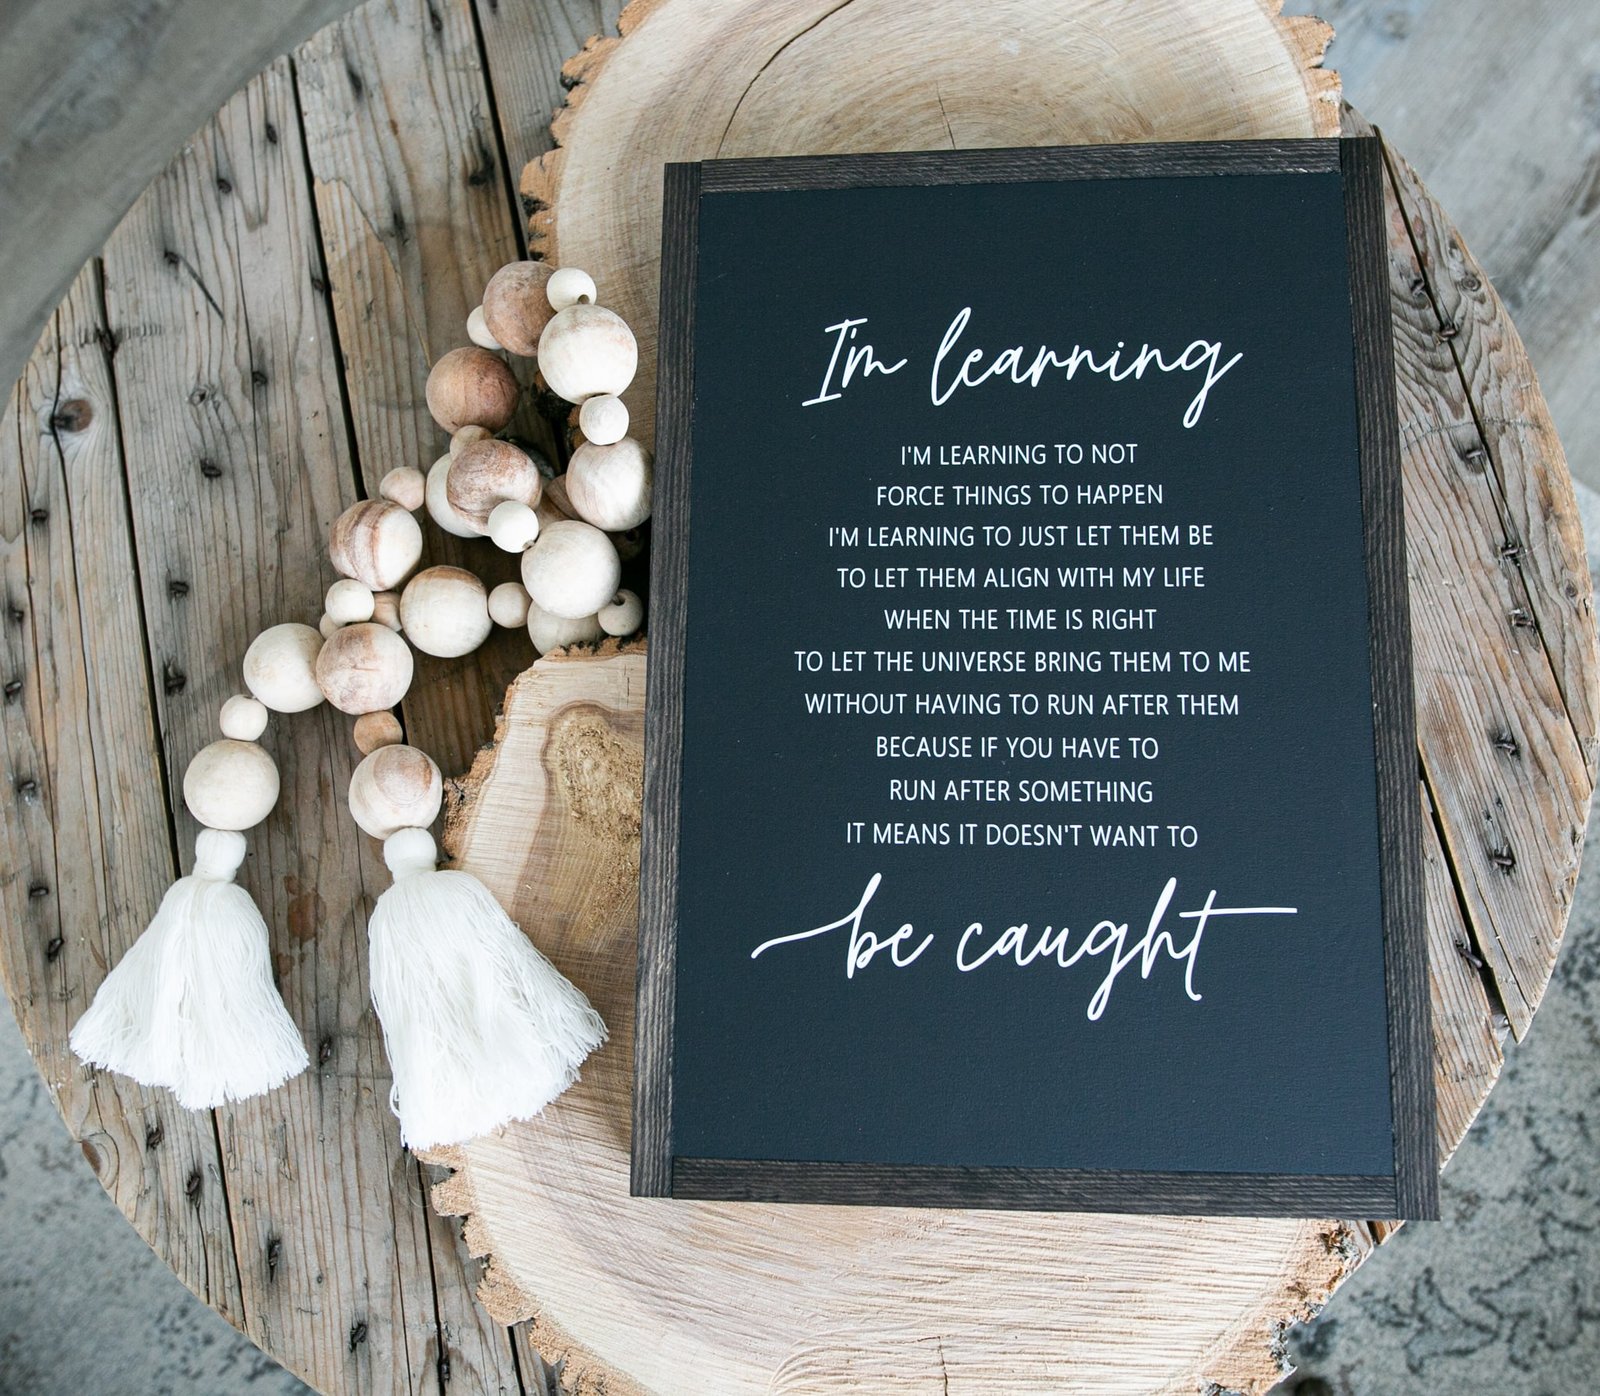 I'm learning
I'M LEARNING TO NOT
FORCE THINGS TO HAPPEN
I'M LEARNING TO JUST LET THEM BE
TO LET THEM ALIGN WITH MY LIFE
WHEN THE TIME IS RIGHT
TO LET THE UNIVERSE BRING THEM TO ME
WITHOUT HAVING TO RUN AFTER THEM
BECAUSE IF YOU HAVE TO
RUN AFTER SOMETHING
IT MEANS IT DOESN'T WANT TO
be caught